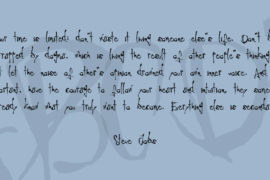 ur time is limited, don't waste it living someone else's life. Don't b
trapped by dogma, which is living the result of other people's thinking
t let the noise of other's opinion drowned your own inner voice. And
ortant, have the courage to follow your heart and intuition, they somem
ready know what you truly want to become. Everything else is secondar
Steve Jobs